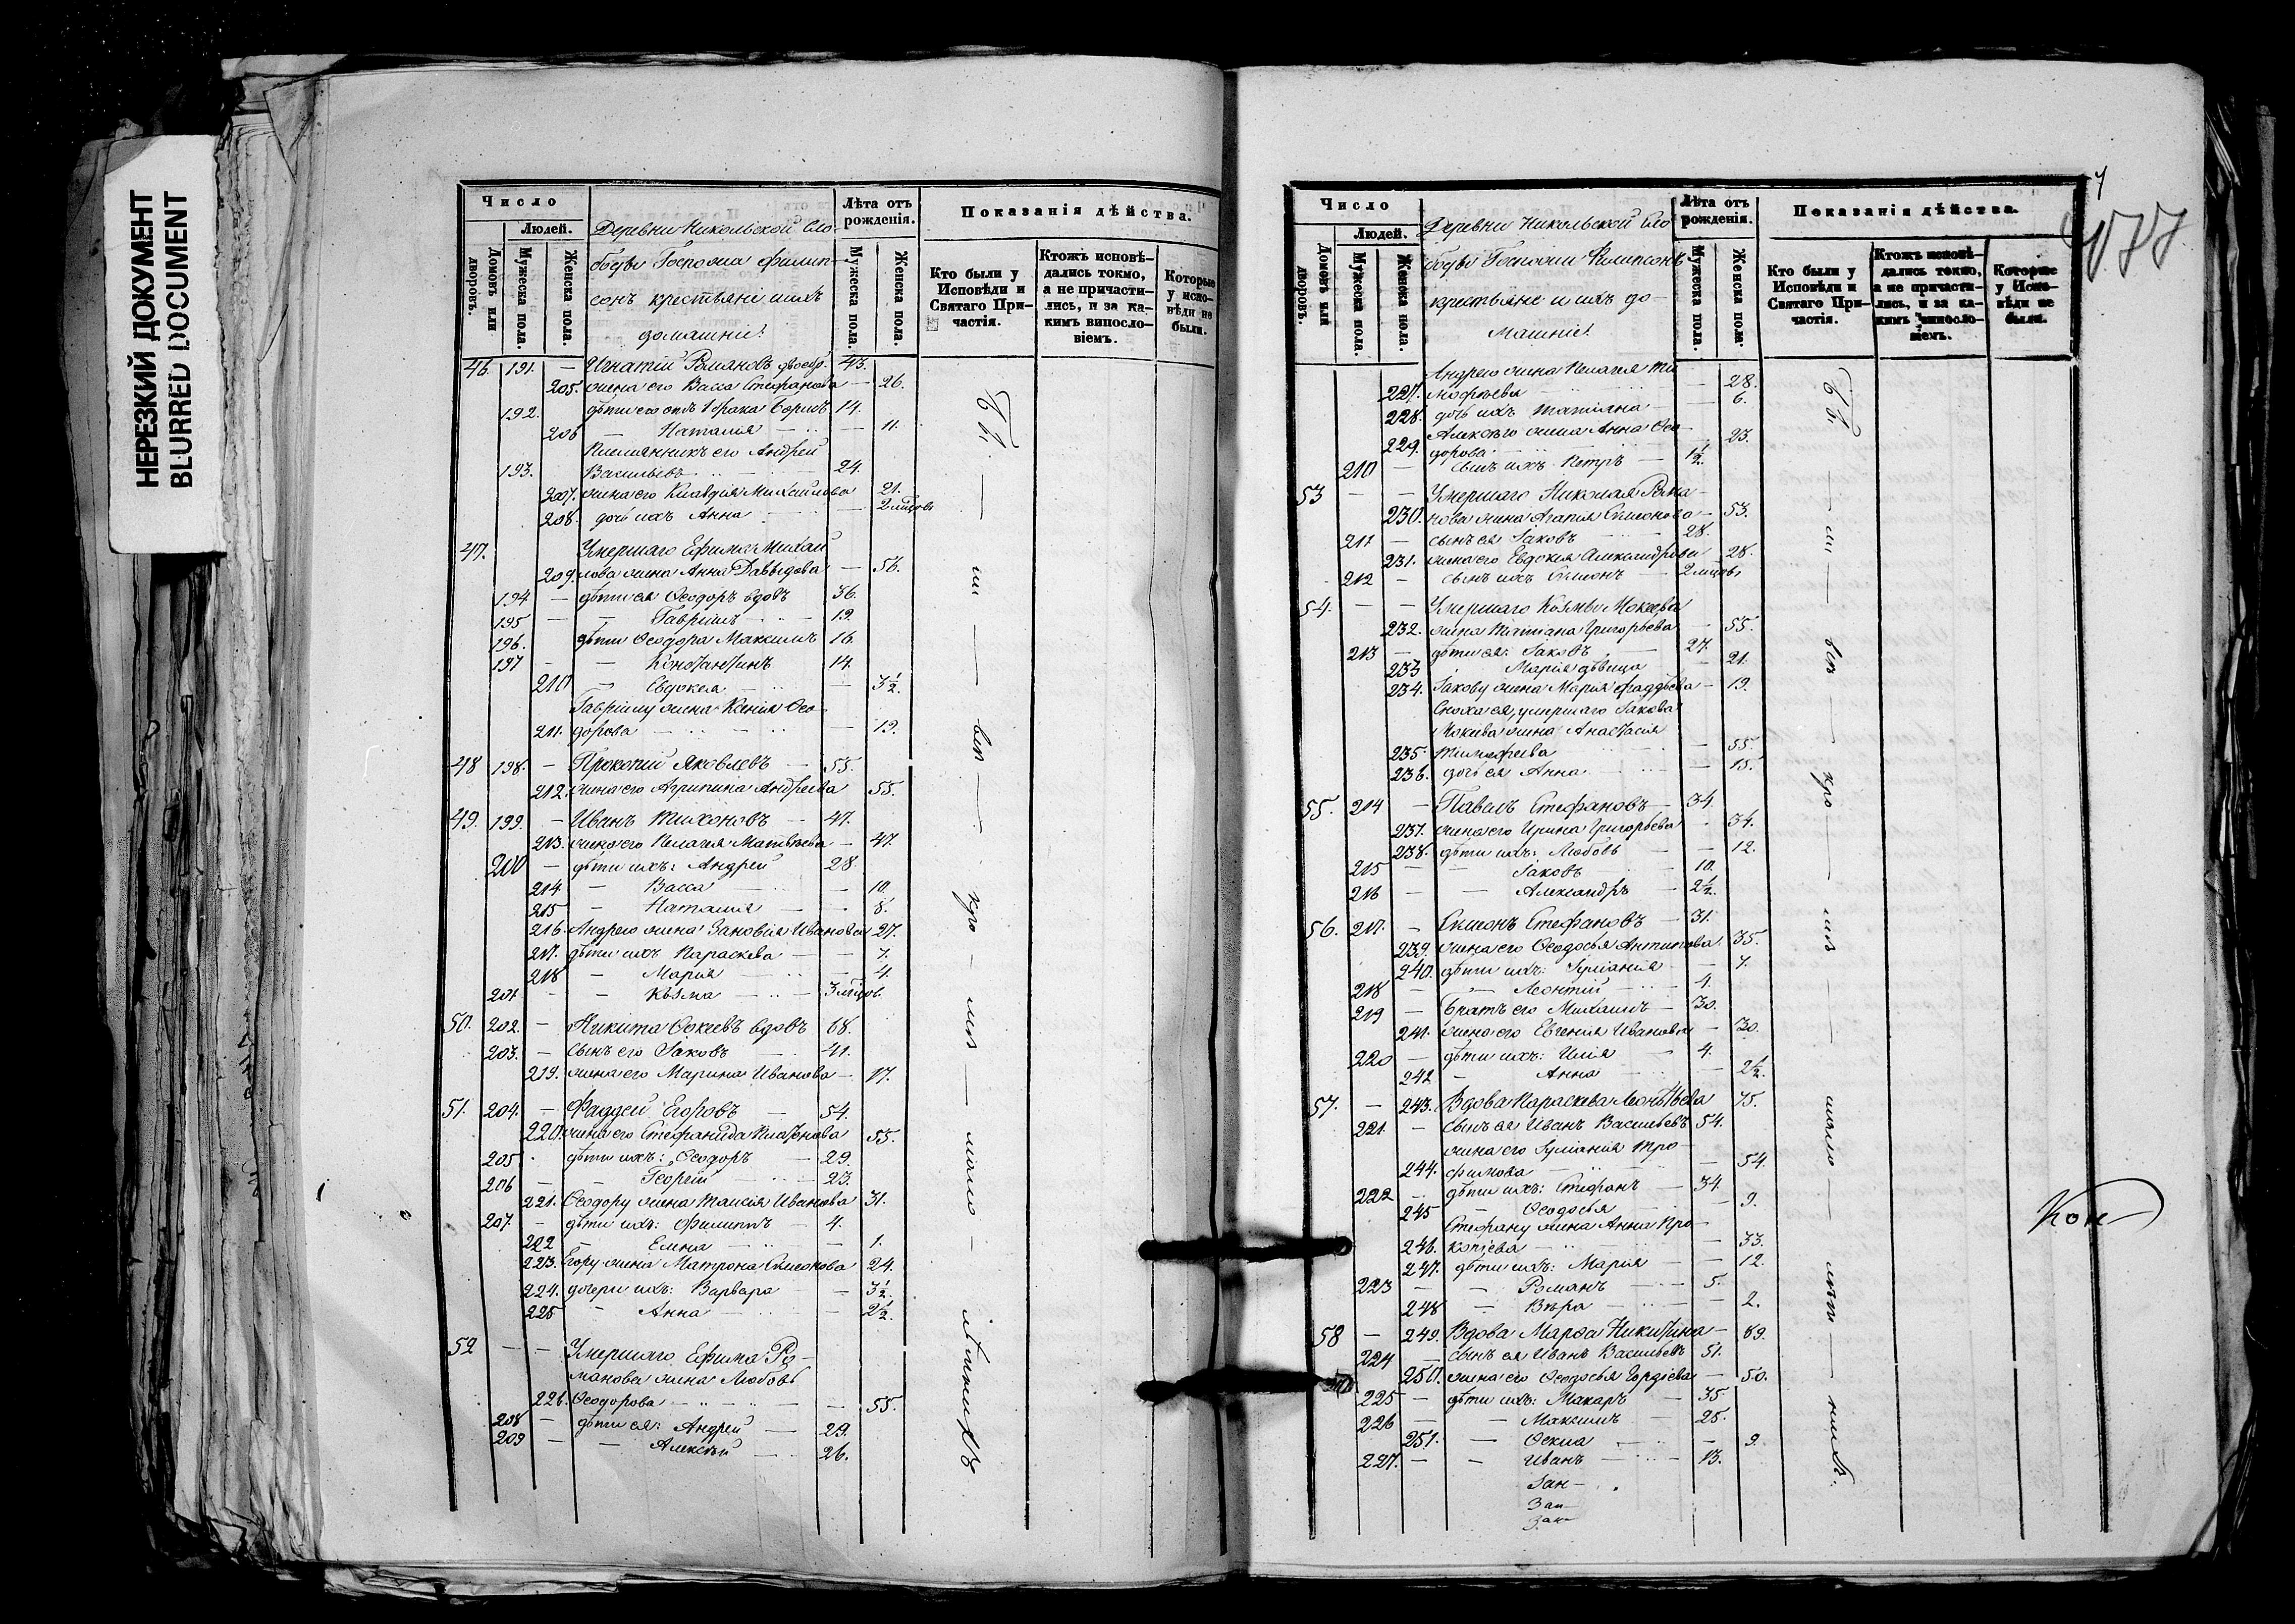 НЕРЕЗКИЙ ДОКУМЕНТ
BLURRED DOCUMENT
Число
Людей.
Домовъ или дворовъ.
Мужеска пола.
Женска пола.
Деревни Никольской Сло-
боды Госпожа Филип-
сонъ крестьяне и ихъ
домашніе:
Лѣта отъ рожденія.
Мужеска пола.
Женска пола.
Показанія дѣйства.
Кто были у Исповѣди и Святаго Причастія.
Ктожъ исповѣдались токмо, а не причастились, и за какимъ винословіемъ.
Которые у исповѣди не были.
46. 191. — Игнатій Романовъ 43.
205. жена его Васса Стефанова — 26.
192. дѣти его отъ 1 брака Борисъ 14.
206 — Наталія — 11.
Племянникъ его Андрей
193. Васильевъ — 24.
207. жена его Клавдія Михайлова 21.
208. дочь ихъ Анна — 2 мѣсяцовъ
47. Умершаго Ефима Михай-
209. лова жена Анна Давыдова — 56.
194 — дѣти ея Ѳеодоръ вдовъ 36.
195 — — Гавріилъ — 19.
196. дѣти Ѳеодора Максимъ 16.
197 — — Константинъ 14.
210 — Евдокея — 3½.
Гавріилу жена Ксенія Ѳео-
211. дорова — 19.
48 198. — Прокопій Яковлевъ — 55.
212. жена его Агрипина Андреева 55.
49. 199. — Иванъ Тихоновъ — 47.
213. жена его Пелагея Матвѣева — 47.
200 — дѣти ихъ: Андрей 28.
214 — Васса — 10.
215 — Наталія — 8.
216. Андрею жена Зановія Иванова 27.
217. дѣти ихъ Параскева — 7.
218 — Марія — 4.
201 — — Козма — 3 мѣсяцов.
50. 202. — Никита Ѳокіевъ вдовъ 68.
203. — сынъ его Іаковъ 41.
219. жена его Марина Иванова — 17.
51. 204. — Фаддей Егоровъ — 54.
220. жена его Стефанида Платонова 55.
205 . дѣти ихъ: Ѳеодоръ — 29.
206 — — Георгій — 23.
221. Ѳеодору жена Таисія Иванова 31.
207. — дѣти ихъ: Филиппъ — 4.
222 — Елена — 1.
223. Егору жена Матрона Симеонова 24.
224. дочери ихъ: Варвара — 3½.
225 — Анна — 2½.
52 — — Умершаго Ефима Ро-
манова жена Любовь
226. Ѳеодорова — 55.
208 — дѣти ея: Андрей — 29.
209 — — Алексѣй — 26.
Бы — ли — всѣ — кро — мѣ — мало — лѣтнихъ
Число
Людей.
Домовъ или дворовъ.
Мужеска пола.
Женска пола.
Деревни Никольской Сло-
боды Госпожи Филипсонъ
крестьяне и ихъ до-
машніе:
Лѣта отъ рожденія.
Мужеска пола.
Женска пола.
Показанія дѣйства.
Кто были у Исповѣди и Святаго Причастія.
Ктожъ исповѣдались токмо, а не причастились, и за какимъ винословіемъ.
Которые у Исповѣди не были.
Андрею жена Пелагея Ти-
227. мофѣева — 28.
228. дочь ихъ Татіана — 6.
Алексѣю жена Анна Ѳео-
229. дорова — 23.
210 — сынъ ихъ Петръ — 1½.
53 — — Умершаго Николая Рома-
230. нова жена Агапія Симеонова — 53.
211 — сынъ ея Іаковъ 28.
231. жена его Евдокея Александрова 28.
212 — сынъ ихъ Симеонъ — 2 мѣсяцовъ
54. — — Умершаго Козмы Мокеева
232. жена Татіана Григорьева — 55.
213 — дѣти ея: Іаковъ — 27.
233 Марія дѣвица — 21.
234. Іакову жена Марія Фаддѣева — 19.
Сноха ея, умершаго Іакова
Мокіева жена Анастасія
235. Тимофеева — 55.
236. дочь ея Анна — 15.
55. 214 — Павелъ Стефановъ — 34.
237. жена его Ирина Григорьева — 34.
238. дѣти ихъ: Любовь — 12.
215 — — Іаковъ 10.
216 — — Александръ — 2½.
56. 217. — Симеонъ Стефановъ — 31.
239. жена его Ѳеодосья Антипова 35.
240. дѣти ихъ: Іуліанія — 7.
218 — — Леонтій — 4.
219 — братъ его Михаилъ — 30.
241. жена его Евгенія Иванова — 30.
220 — дѣти ихъ: Илія — 4.
242 — Анна — 2½.
57. — 243. Вдова Параскева Леонтьева 75.
221. — сынъ ея Иванъ Васильевъ 54.
жена его Іуліанія Тро-
244. фимова — 54.
222 — дѣти ихъ: Стефанъ — 34.
245 — Ѳеодосья — 9.
Стефану жена Анна Про-
246. копіева — 33.
247. дѣти ихъ: Марія — 12.
223 — — Романъ — 5.
248 — Вѣра — 2.
58 — 249. Вдова Марѳа Никитина — 69.
224 — сынъ ея Иванъ Васильевъ 51.
250. жена его Ѳеодосья Гордіева — 50.
225 — дѣти ихъ: Макаръ — 35.
226 — — Максимъ — 25.
251. — Ѳекла — 9.
227. — — Иванъ — 13.
Зан—
Зан—
Бы — ли — всѣ — кро — мѣ — мало — лѣт — нихъ.
Кон